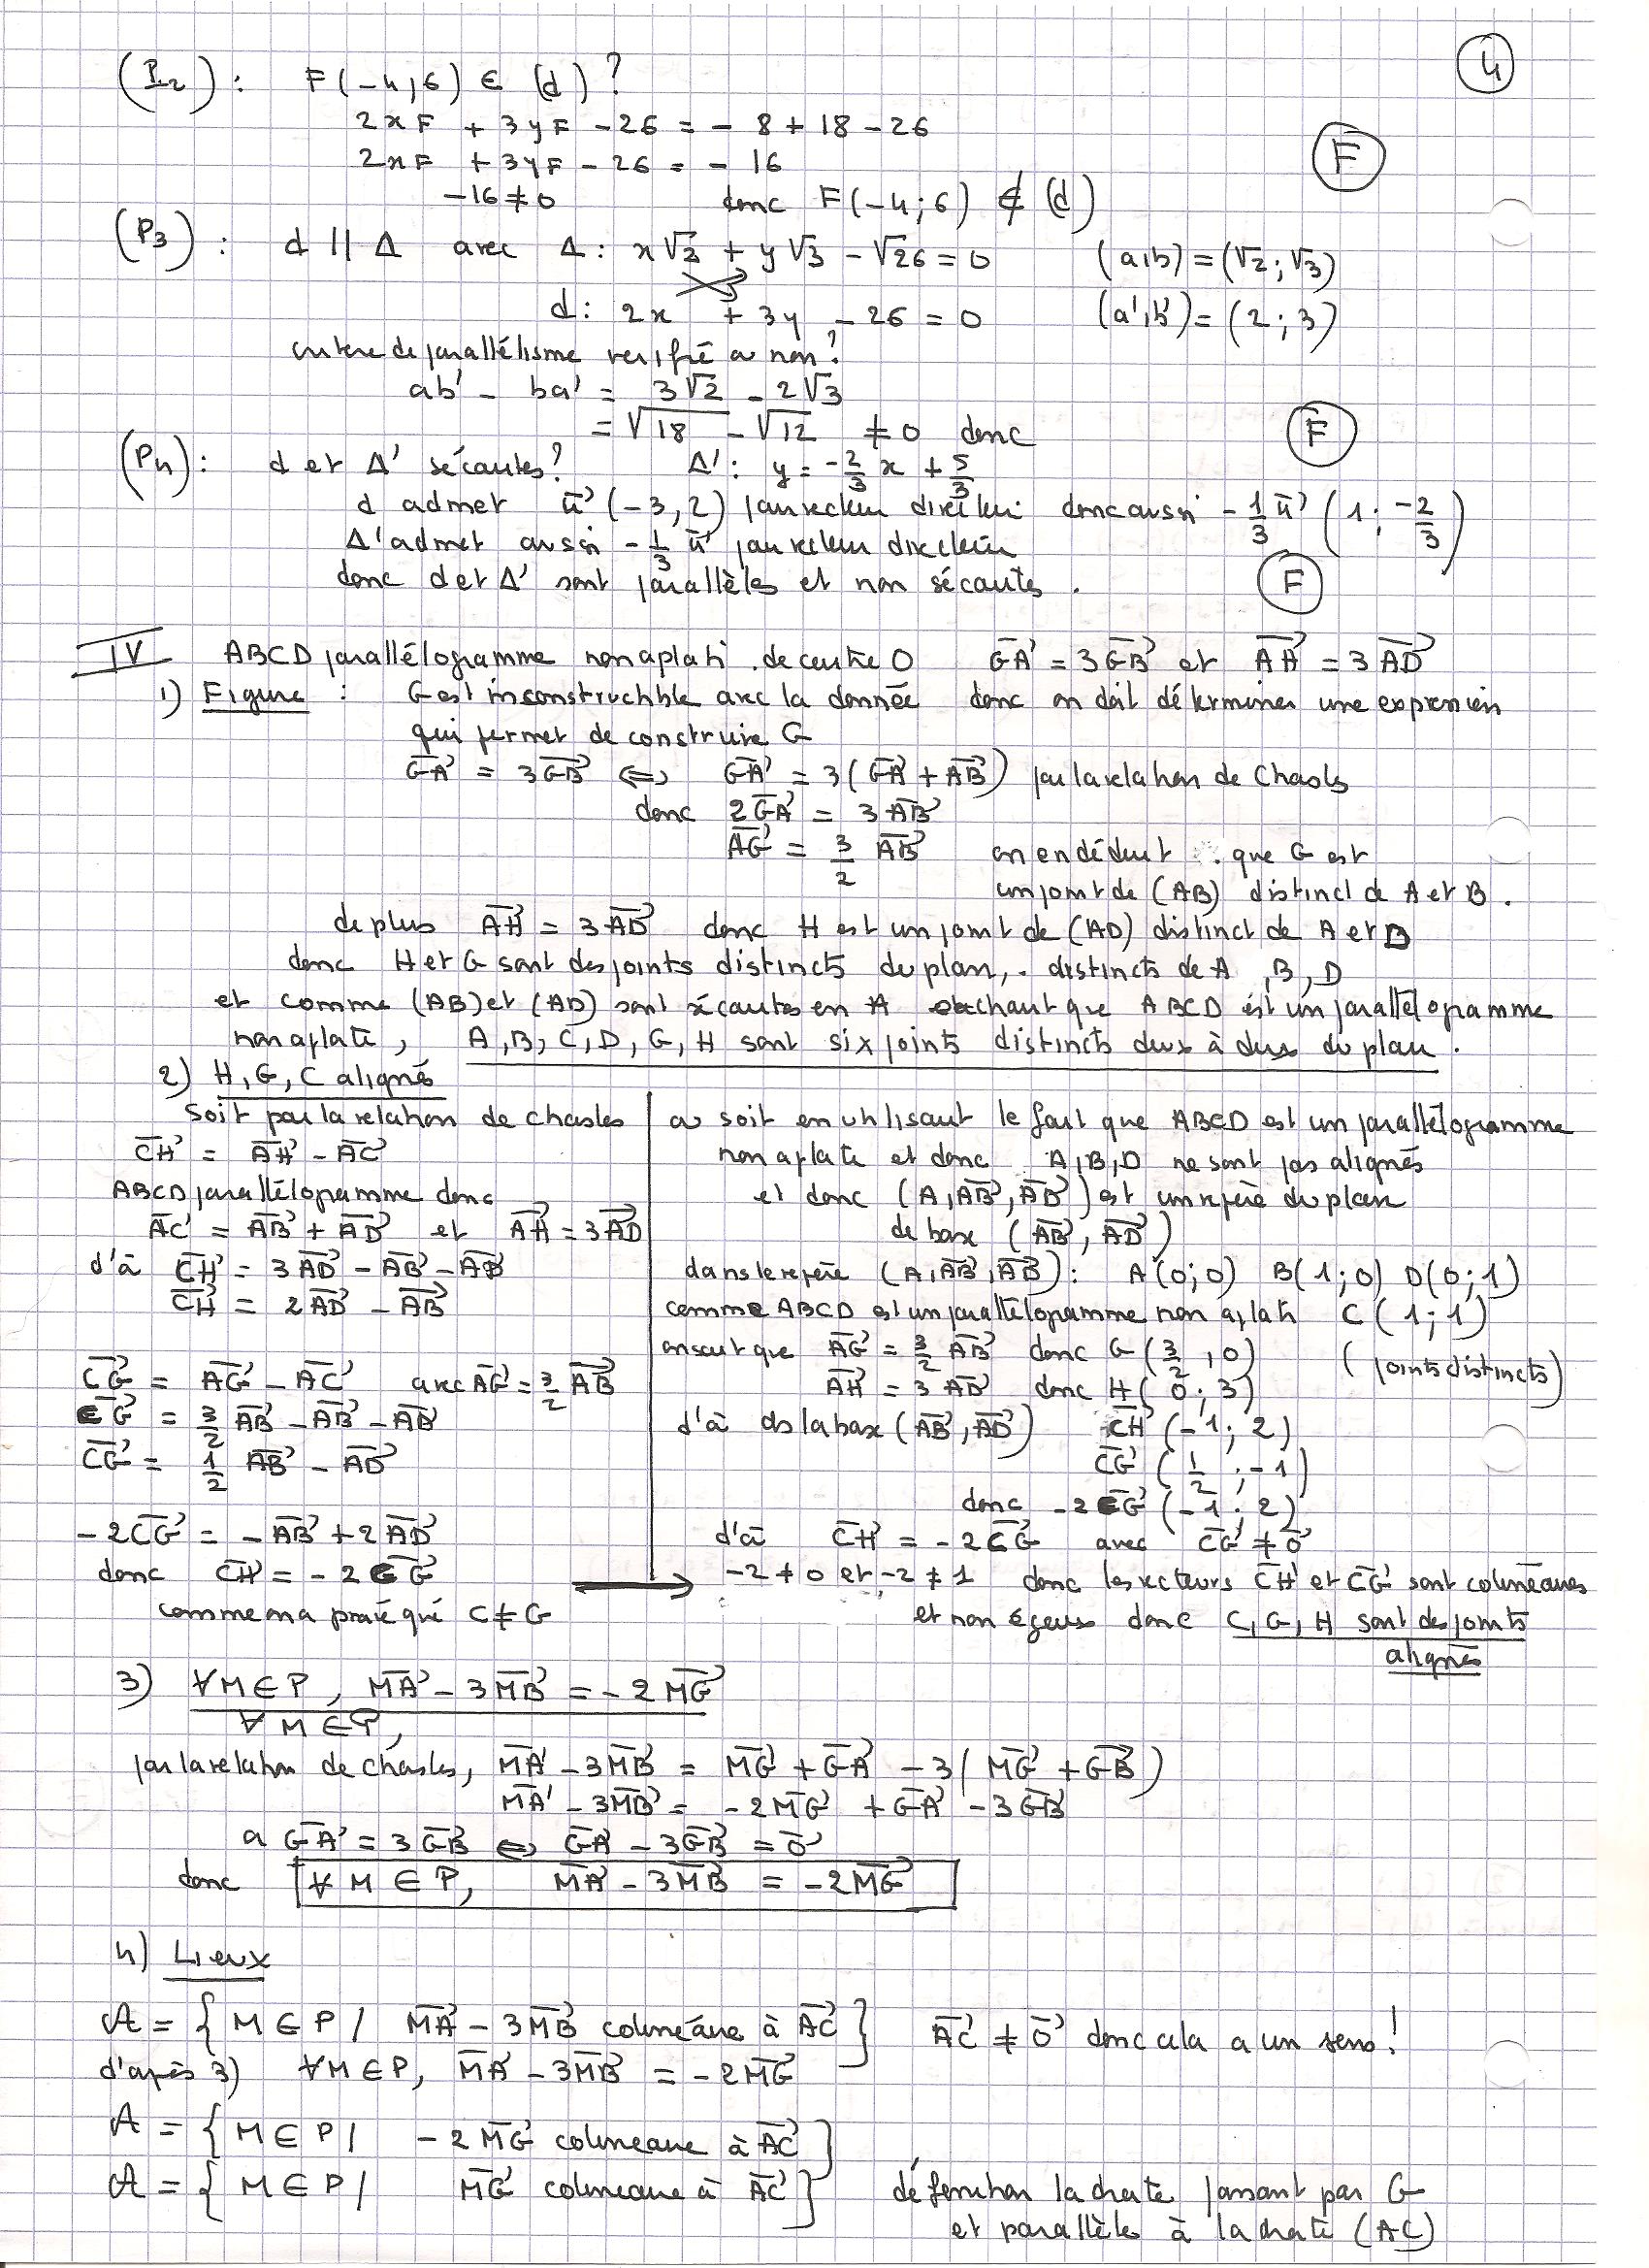 4
(P2) : F(-4;6) ∈ (d) ?
2xF + 3yF - 26 = - 8 + 18 - 26
F
2xF + 3yF - 26 = - 16
-16 ≠ 0 donc F(-4;6) ∉ (d)
(P3) : d // Δ avec Δ : x√2 + y√3 - √26 = 0 (a,b) = (√2 ; √3)
d : 2x + 3y - 26 = 0 (a',b') = (2 ; 3)
critere de parallélisme verifié ou non ?
ab' - ba' = 3√2 - 2√3
= √18 - √12 ≠ 0 donc F
(P4) : d et Δ' sécantes ? Δ' : y = -2/3 x + 5/3
d admet u→(-3,2) pour vecteur directeur donc aussi -1/3 u→ (1 ; -2/3)
Δ' admet aussi -1/3 u→ pour vecteur directeur
donc d et Δ' sont parallèles et non sécantes . F
IV ABCD parallélogramme non aplati . de centre O GA→ = 3GB→ et AH→ = 3AD→
1) Figure : G est inconstructible avec la donnée donc on doit déterminer une expression
qui permet de construire G
GA→ = 3GB→ ⇔ GA→ = 3(GA→ + AB→) par la relation de Chasles
donc 2GA→ = 3AB→
AG→ = 3/2 AB→ on en déduit que G est
un point de (AB) distinct de A et B .
de plus AH→ = 3AD→ donc H est un point de (AD) distinct de A et D
donc H et G sont des points distincts du plan, distincts de A , B , D
et comme (AB) et (AD) sont sécantes en A sachant que ABCD est un parallélogramme
non aplati , A, B, C, D, G, H sont six points distincts deux à deux du plan .
2) H, G, C alignés
soit par la relation de chasles
CH→ = AH→ - AC→
ABCD parallélogramme donc
AC→ = AB→ + AD→ et AH→ = 3AD→
d'où CH→ = 3AD→ - AB→ - AD→
CH→ = 2AD→ - AB→
CG→ = AG→ - AC→ avec AG→ = 3/2 AB→
CG→ = 3/2 AB→ - AB→ - AD→
CG→ = 1/2 AB→ - AD→
-2CG→ = -AB→ + 2AD→
donc CH→ = -2CG→
comme on a prouvé que C ≠ G
ou soit en utilisant le fait que ABCD est un parallélogramme
non aplati et donc A, B, D ne sont pas alignés
et donc (A, AB→, AD→) est un repère du plan
de base (AB→, AD→)
dans le repère (A, AB→, AD→) : A(0;0) B(1;0) D(0;1)
comme ABCD est un parallélogramme non aplati C(1;1)
on sait que AG→ = 3/2 AB→ donc G(3/2 , 0) (points distincts)
AH→ = 3AD→ donc H(0;3)
d'où ds la base (AB→, AD→) CH→(-1;2)
CG→(1/2 ; -1)
donc -2CG→(-1;2)
d'où CH→ = -2CG→ avec CG→ ≠ 0→
-2 ≠ 0 et -2 ≠ 1 donc les vecteurs CH→ et CG→ sont colinéaires
et non égaux donc C, G, H sont des points
alignés
3) ∀M∈P, MA→ - 3MB→ = -2MG→
∀M∈P,
par la relation de chasles, MA→ - 3MB→ = MG→ + GA→ - 3(MG→ + GB→)
MA→ - 3MB→ = -2MG→ + GA→ - 3GB→
a GA→ = 3GB→ ⇔ GA→ - 3GB→ = 0→
donc ∀M∈P, MA→ - 3MB→ = -2MG→
4) Lieux
A = {M∈P / MA→ - 3MB→ colinéaire à AC→} AC→ ≠ 0→ donc cela a un sens !
d'après 3) ∀M∈P, MA→ - 3MB→ = -2MG→
A = {M∈P / -2MG→ colineaire à AC→}
A = {M∈P / MG→ colineaire à AC→} définition la droite passant par G
et parallèle à la droite (AC)